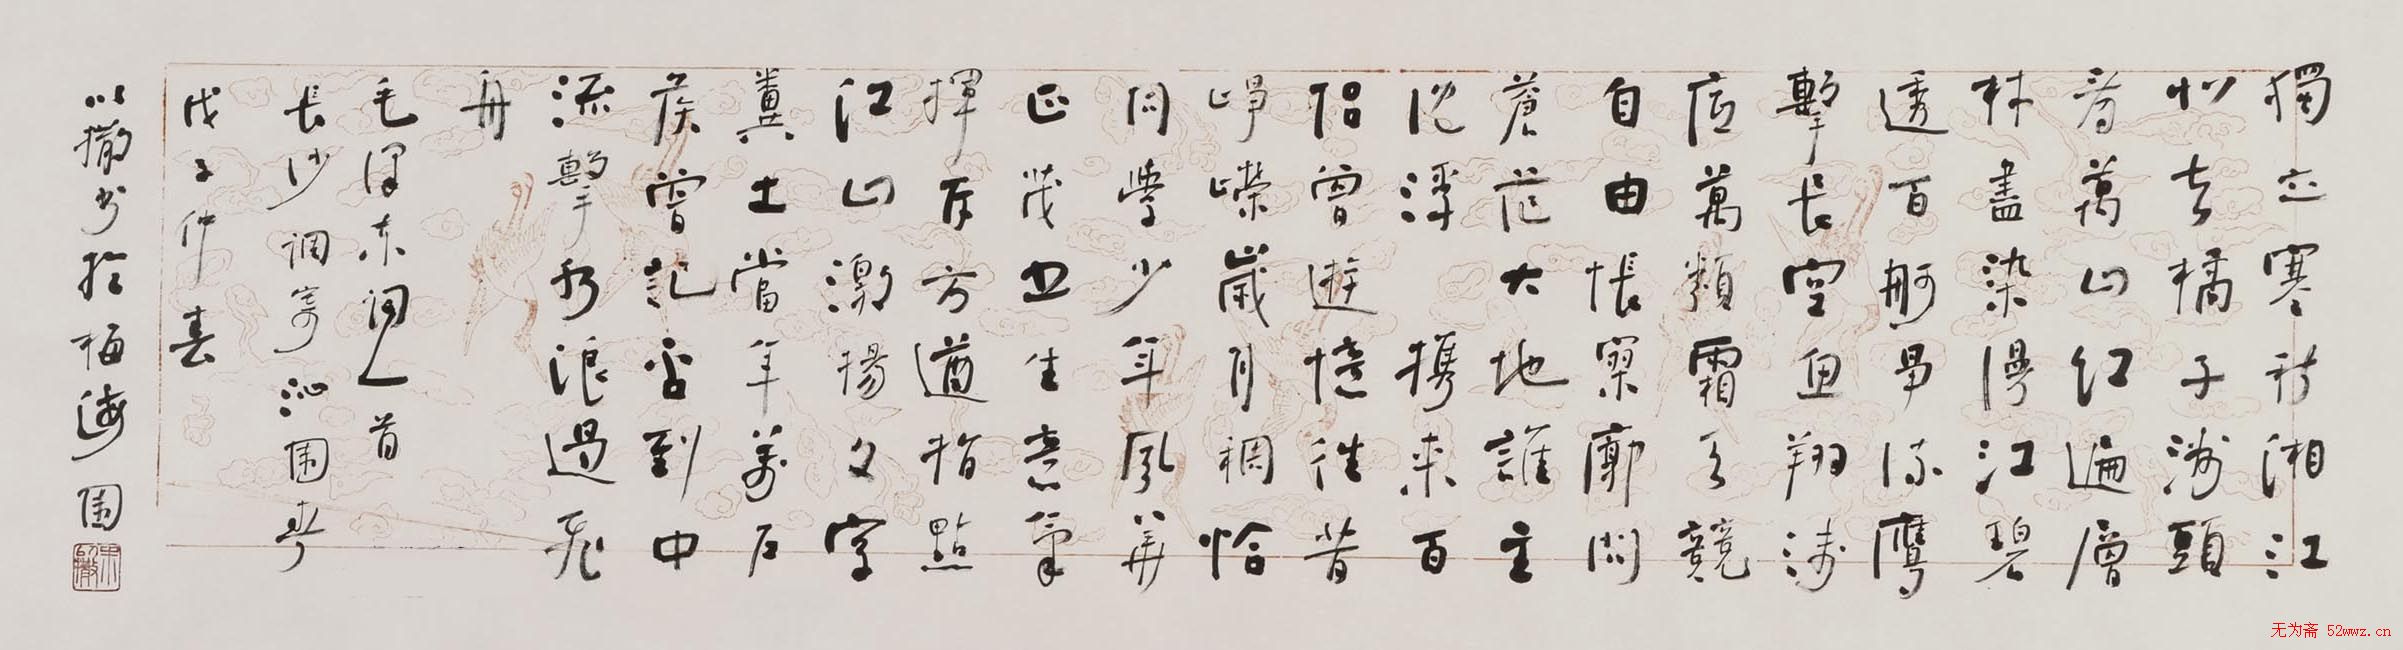 獨立寒秋湘江
北去橘子洲頭
看萬山紅遍層
林盡染漫江碧
透百舸爭流鷹
擊長空魚翔淺
底萬類霜天競
自由悵寥廓問
蒼茫大地誰主
沈浮 携來百
侣曾遊憶往昔
崢嶸歲月稠恰
同學少年風華
正茂書生意氣
揮斥方遒指點
江山激揚文字
糞土當年萬戶
侯曾記否到中
流擊水浪遏飛
舟
毛澤東詞一首
長沙 調寄沁園春
戊子仲春
以撒書於梅海園
无为斋 52wwz.cn